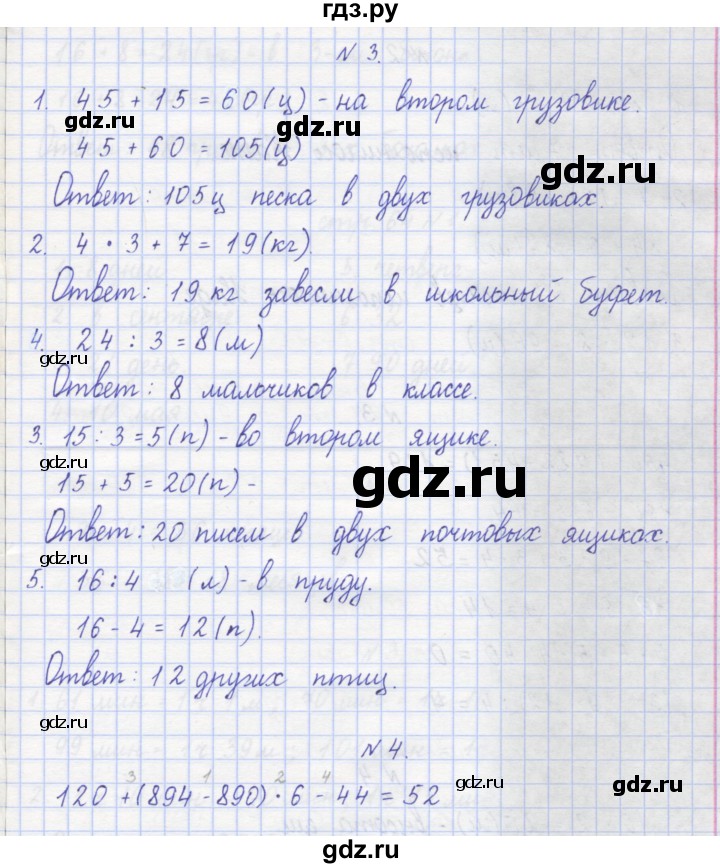 гдз.ру
N 3.
1. 45 + 15 = 60 (ц) - на втором грузовике.
gdz.ru
gdz.ru
45 + 60 = 105 (ц)
gdz.ru
Ответ: 105 ц песка в двух грузовиках.
2. 4 · 3 + 7 = 19 (кг).
gdz.ru
Ответ: 19 кг завесли в школьный буфет.
4. 24 : 3 = 8 (м)
gdz.ru
gdz.ru
Ответ: 8 мальчиков в классе.
3. 15 : 3 = 5 (п) - во втором ящике.
gdz.ru
gdz.ru
15 + 5 = 20 (п) -
Ответ: 20 писем в двух почтовых ящиках.
gdz.ru
gdz.ru
5. 16 : 4 (л) - в пруду.
16 - 4 = 12 (п).
Ответ: 12 других птиц.
gdz.ru
gdz.ru
N 4.
3 1 2 4
120 + (894 - 890) · 6 - 44 = 52
gdz.ru
gdz.ru
gdz.ru